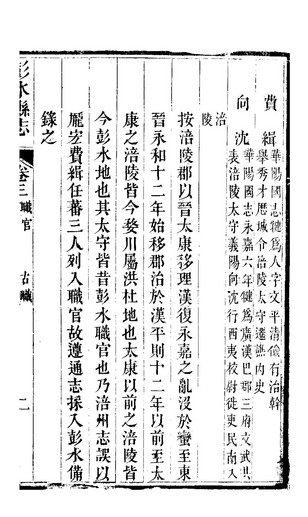 費緝華陽國志犍為人字文平清儉有治幹
舉秀才歷城令涪陵太守遷譙內史
向沈華陽國志永嘉六年犍為廣漢巴郡三府文武共
表涪陵太守義陽向沈行西夷校尉徙吏民南入
涪陵
按涪陵郡以晉太康移理漢復永嘉之亂沒於蠻至東
晉永和十二年始移郡治於漢平則十二年以前至太
康之涪陵皆今婺川屬洪杜地也太康以前之涪陵皆
今彭水地也其太守皆昔彭水職官也乃涪州志誤以
龎宏費緝任蕃三人列入職官故遵通志採入彭水備
錄之
彭水縣志
卷三職官
古職
二